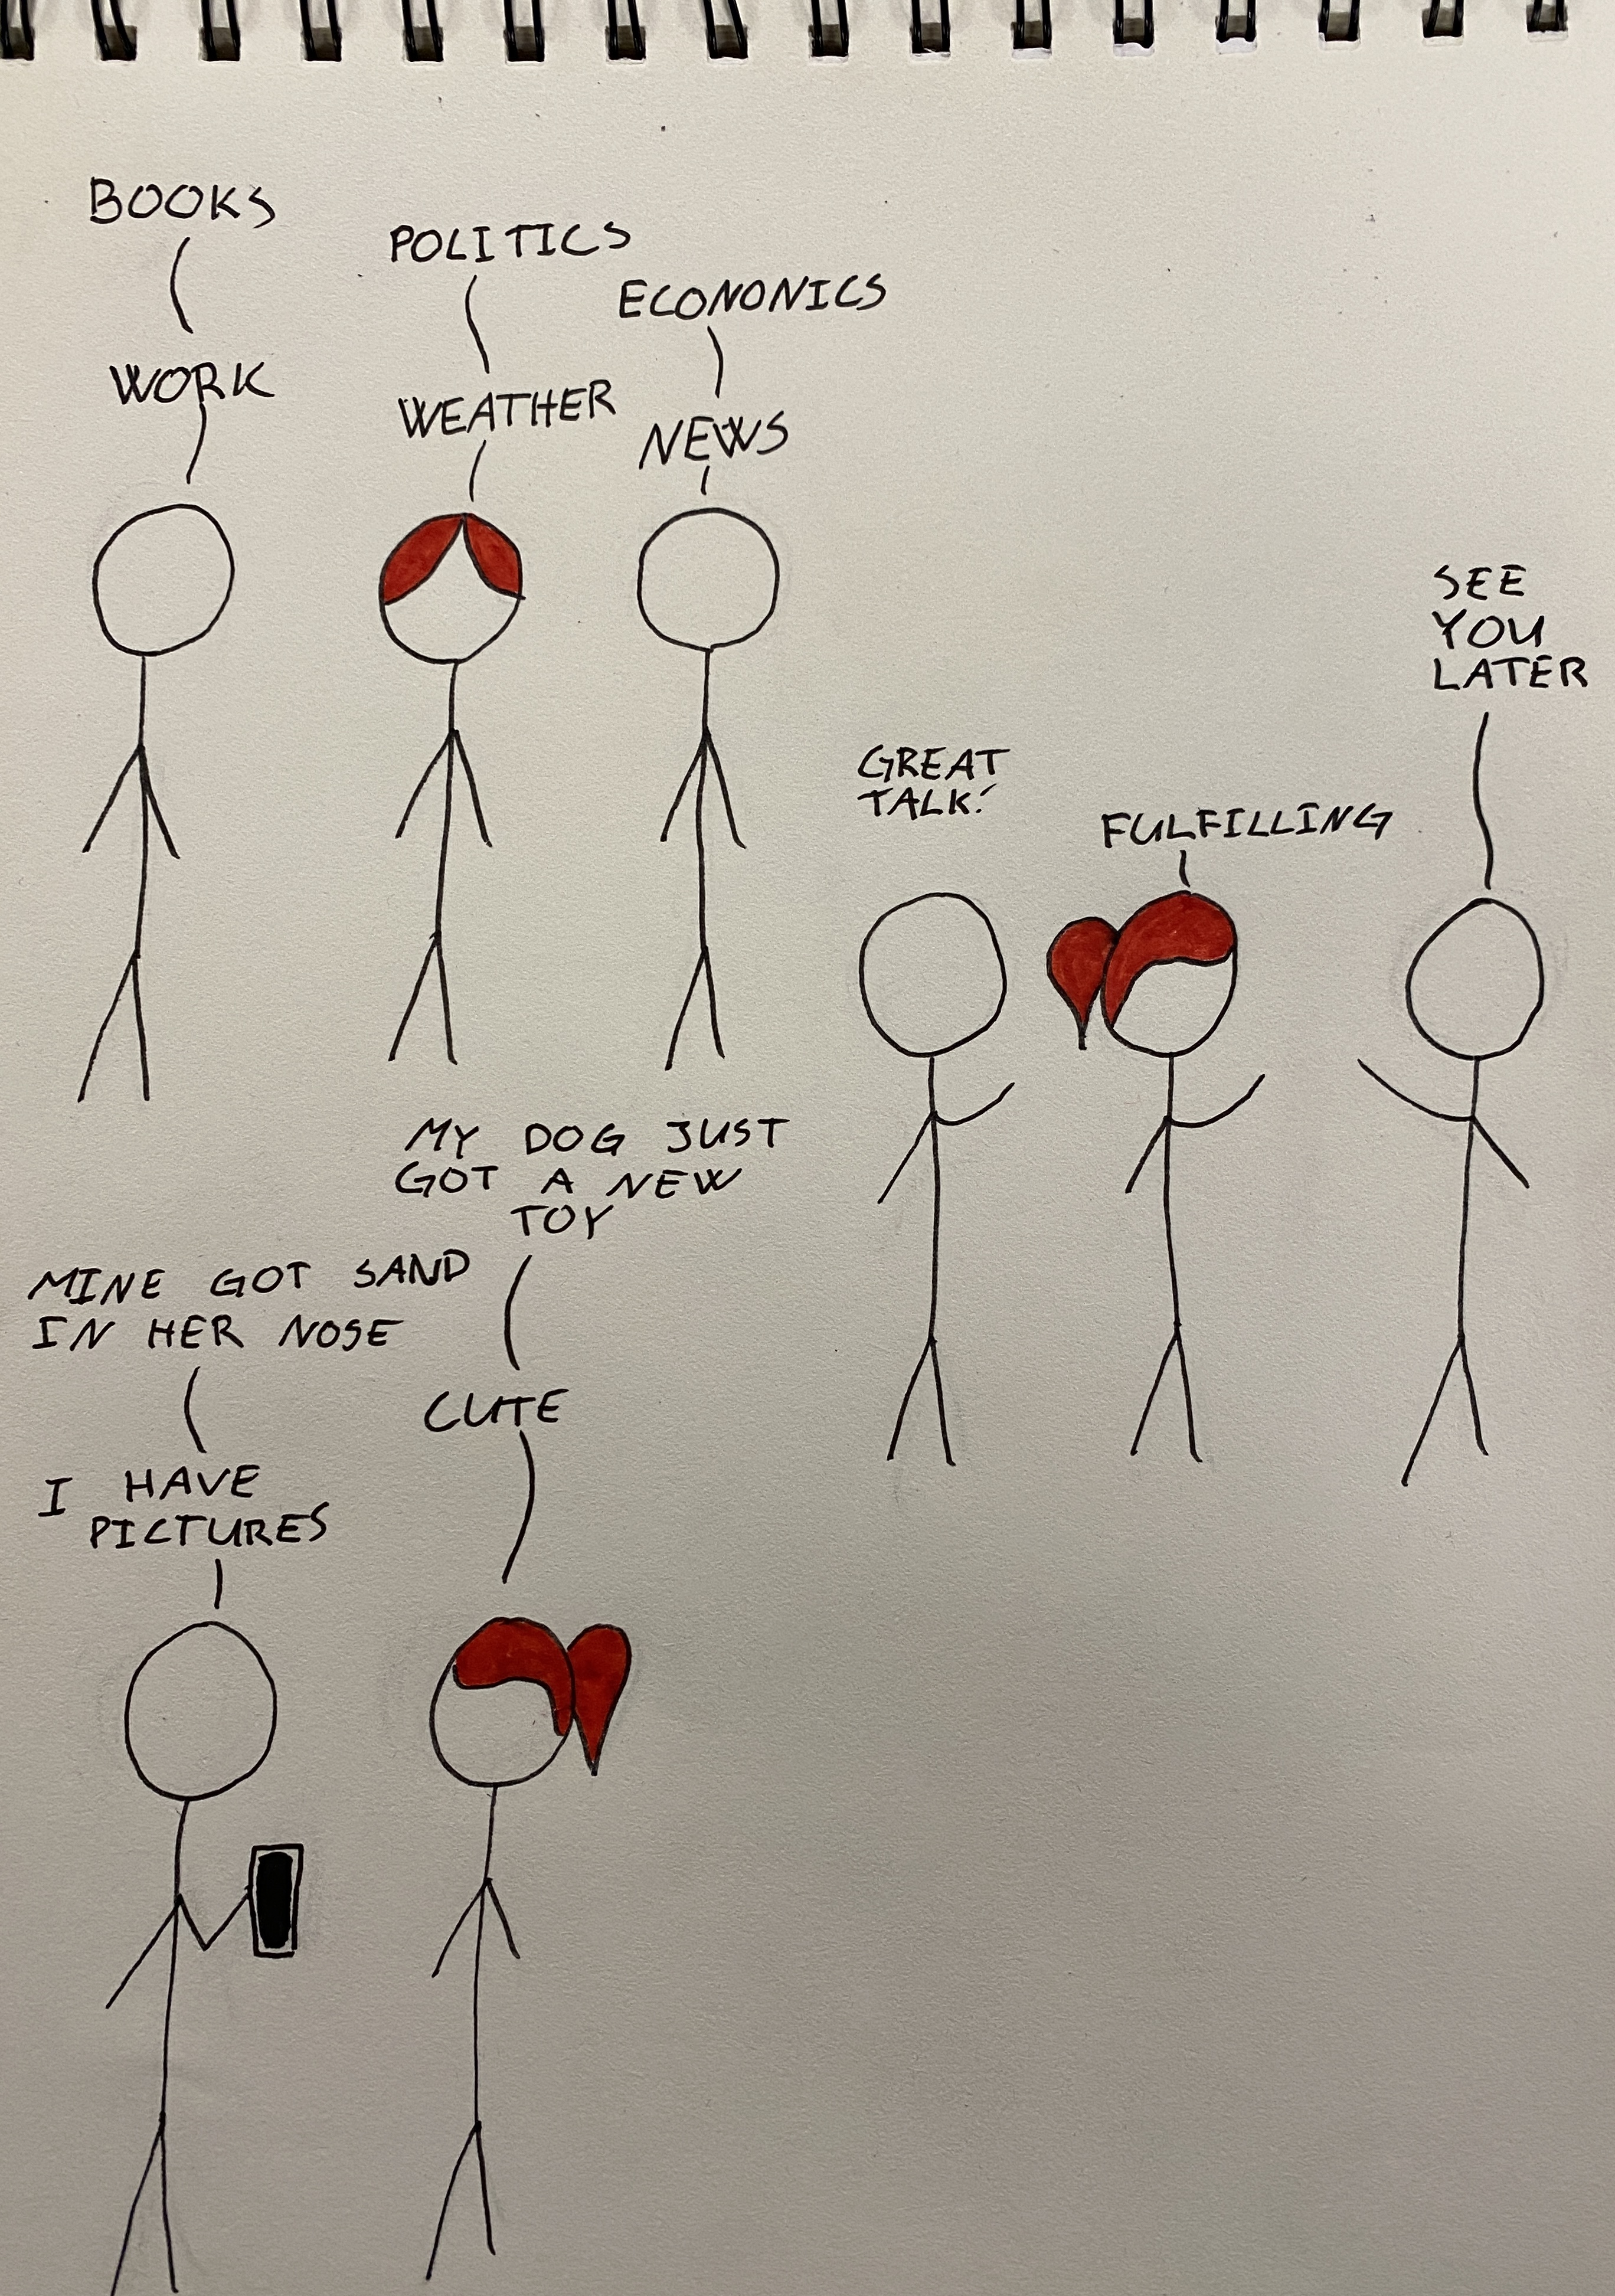 BOOKS
WORK
POLITICS
WEATHER
ECONONICS
NEWS
GREAT
TALK!
FULFILLING
SEE
YOU
LATER
MY DOG JUST
GOT A NEW
TOY
MINE GOT SAND
IN HER NOSE
CUTE
I HAVE
PICTURES